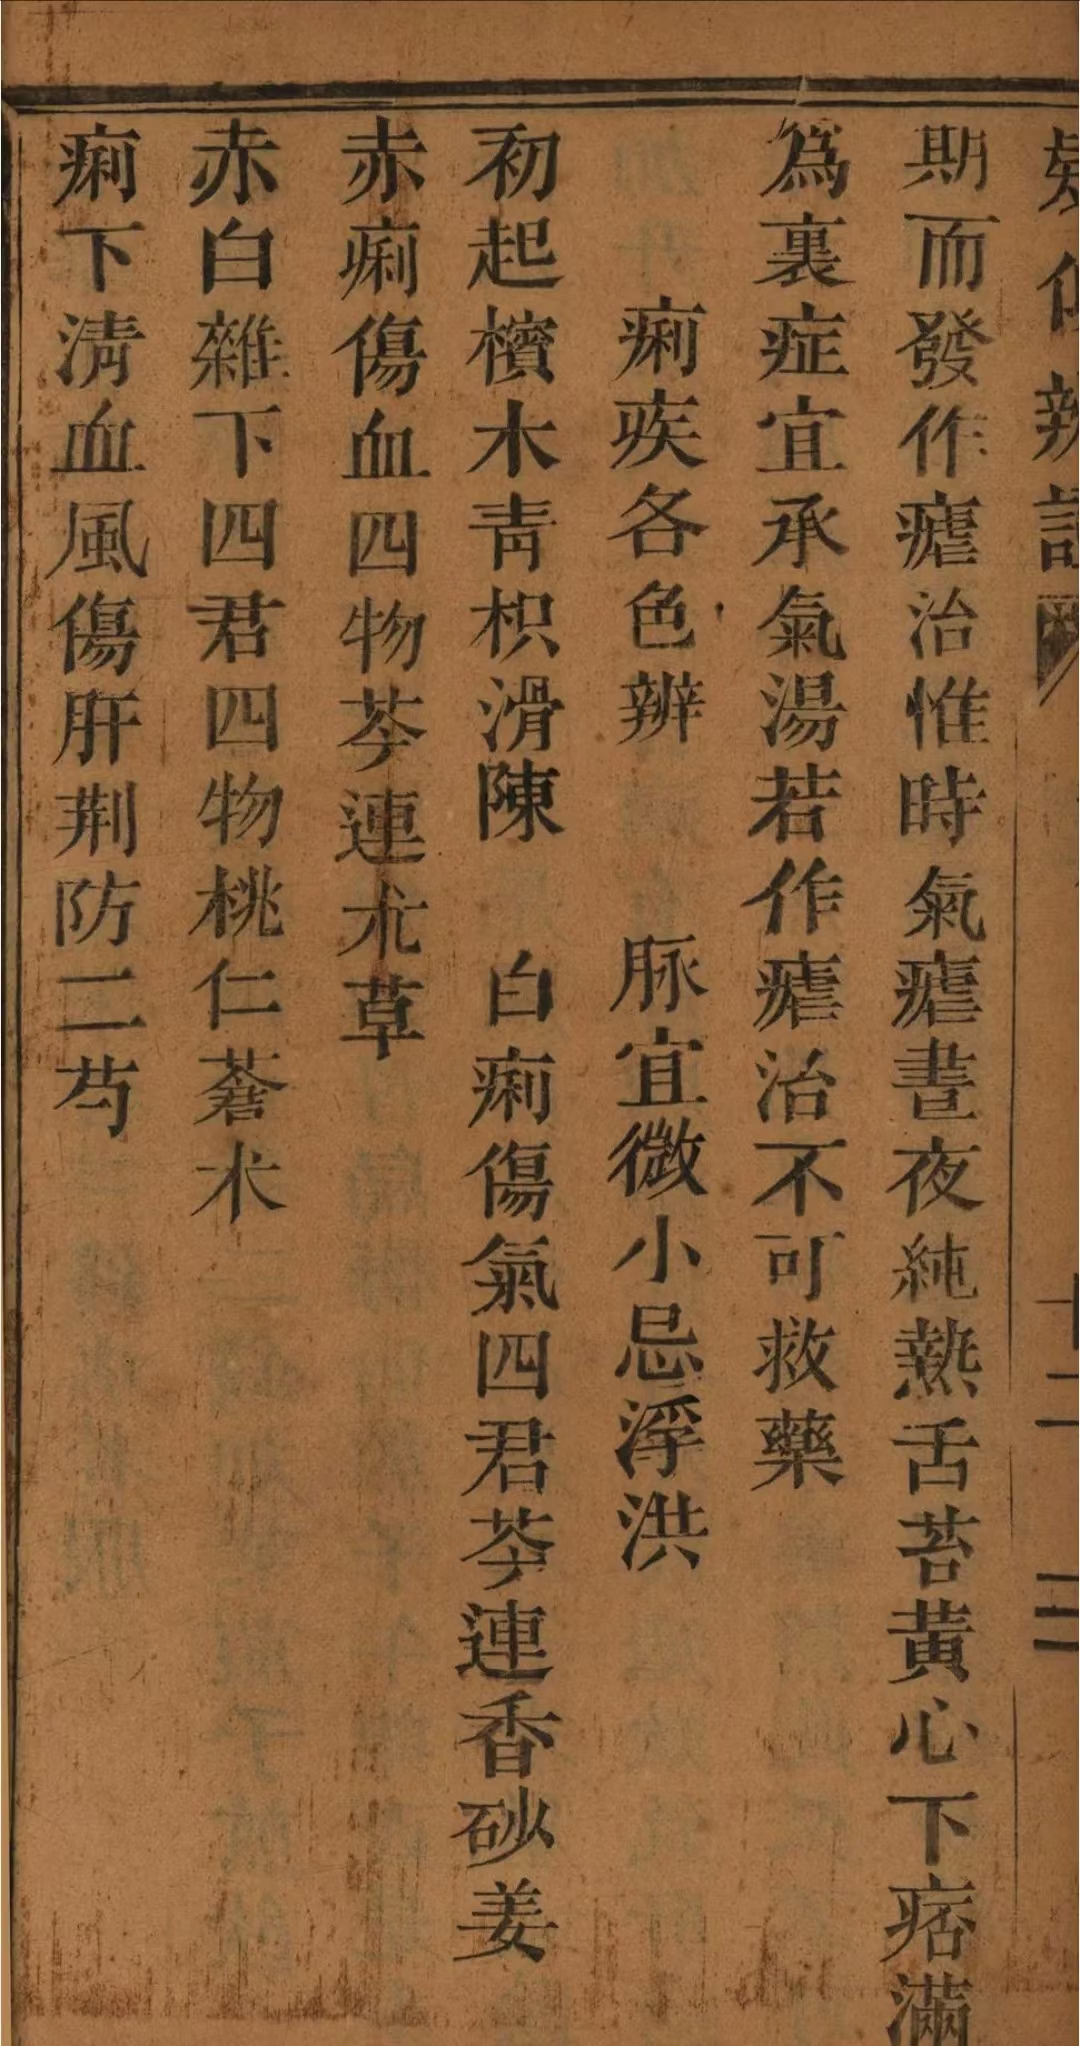 期而發作瘧治惟時氣瘧晝夜純熱舌苔黃心下痞滿
為裏症宜承氣湯若作瘧治不可救藥
痢疾各色辨 脉宜微小忌浮洪
初起檳木青枳滑陳 白痢傷氣四君芩連香砂姜
赤痢傷血四物芩連朮草
赤白雜下四君四物桃仁蒼术
痢下清血風傷肝荆防二芍